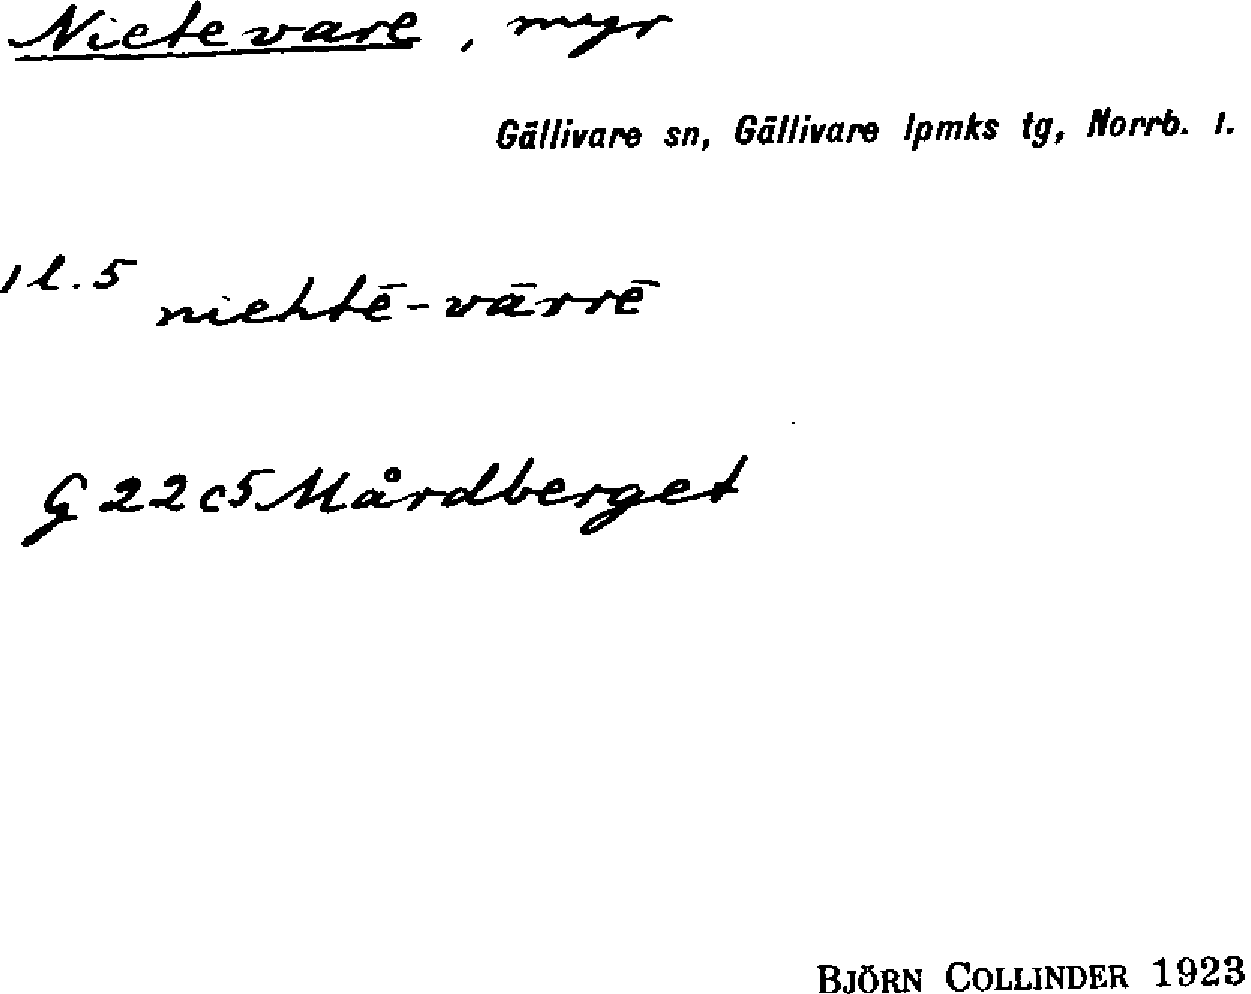 Nietevare, myr
Gällivare sn, Gällivare lpmks tg, Norrb. l.
1 l. 5 niehtē-vārrē
G 22 c5 Mårdberget
BJÖRN COLLINDER 1923